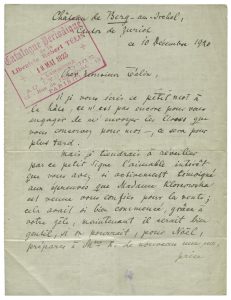 Château de Berg-am-Irchel,
Canton de Zurich
ce 10 Décembre 1920
Catalogue
Librairie
13 MAI 1925
PARIS
Cher Monsieur
si je vous écris ce petit mot à
la hâte, ce n'est pas encore pour vous
engager de m'envoyer les livres que
vous conservez pour moi –, ce sera pour
plus tard.
Mais je tiendrais à réveiller
par ce petit signe l'aimable intérêt
que vous avez si activement témoigné
aux épreuves que Madame
est venue vous confier pour la vente;
cela avait si bien commencé, grâce à
votre, maintenant il serait bien
gentil, si on pouvait, pour Noël,
préparer à Mme K. de nouveau une